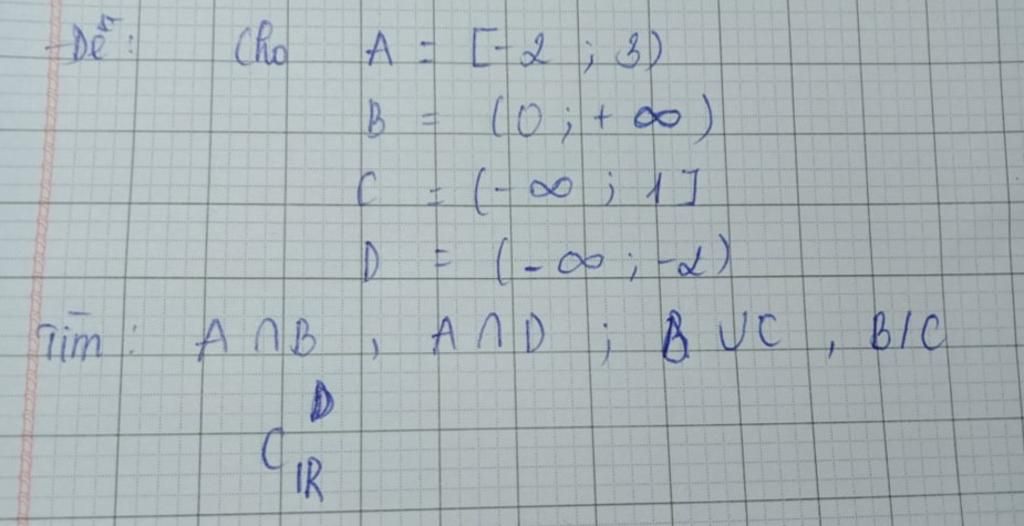 Đề: Cho A = [-2 ; 3)
B = (0 ; + ∞)
C = (-∞ ; 1]
D = (-∞ ; -2)
Tìm : A ∩ B , A ∩ D ; B ∪ C , B / C
C_ℝ^D